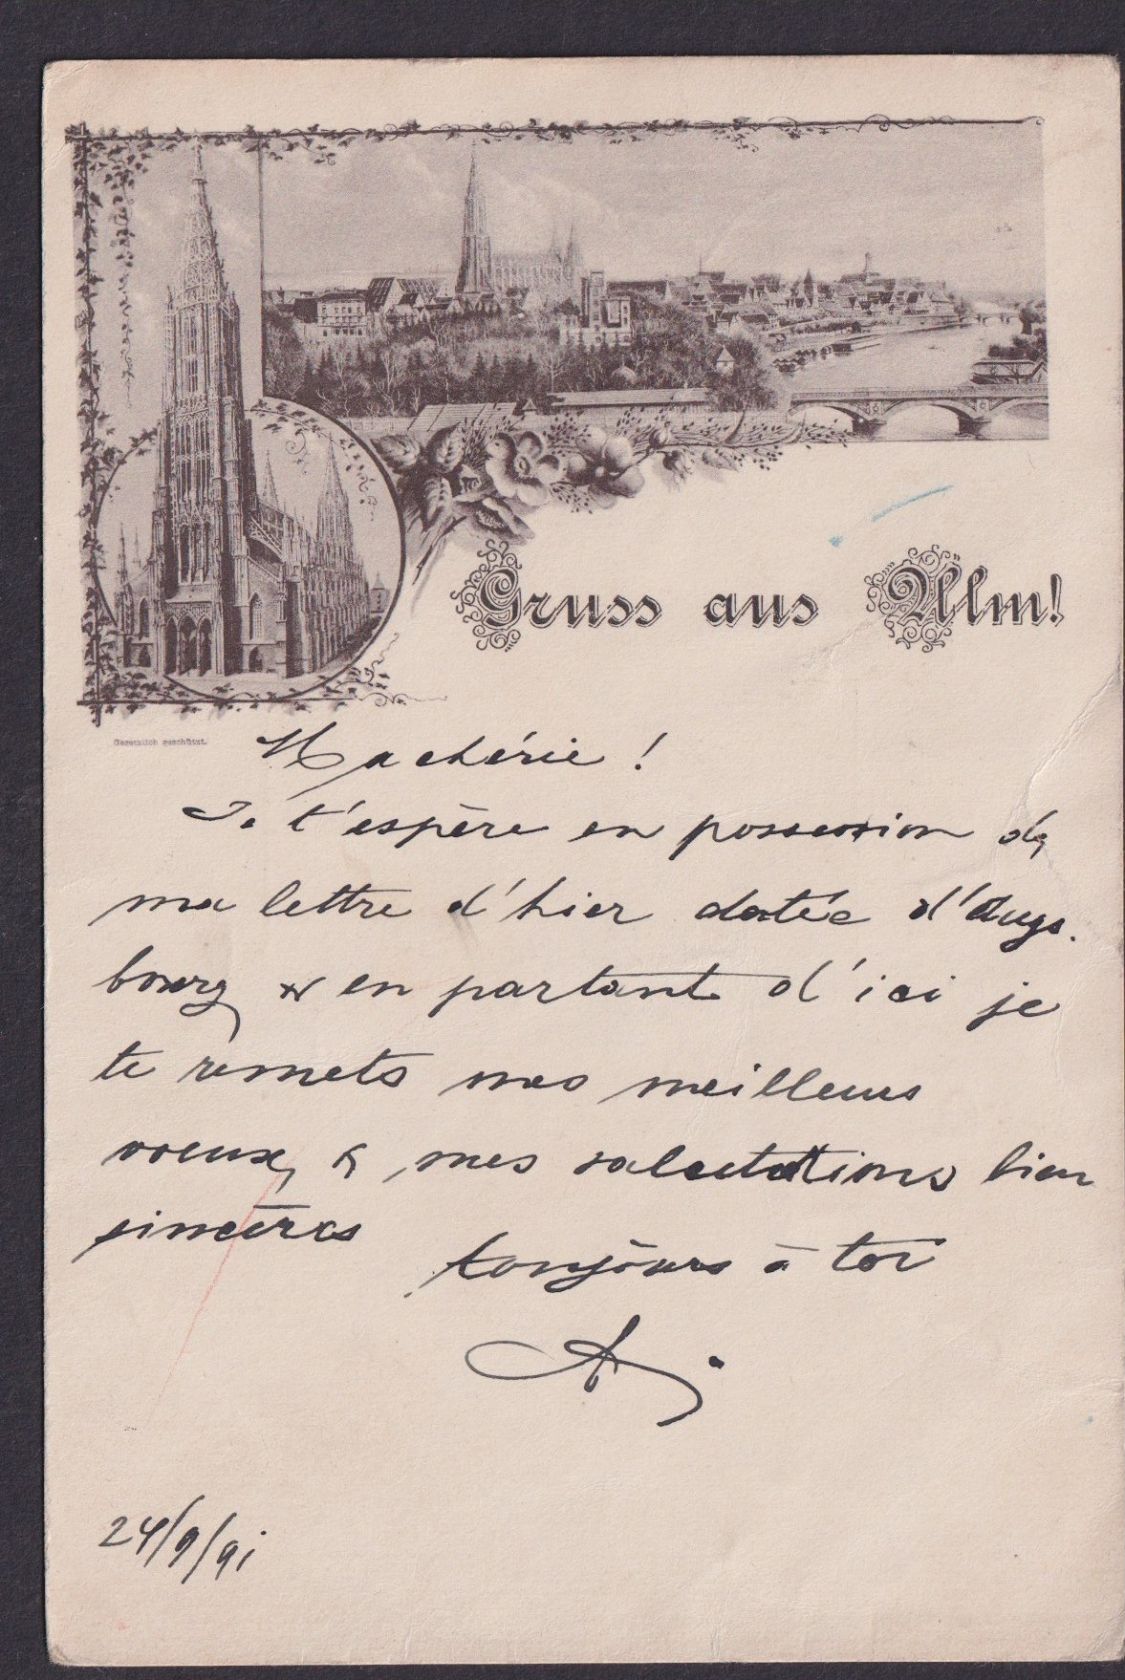 Gruss aus Ulm!
Gesetzlich geschützt.
Ma chérie !
Je t'espère en possession de
ma lettre d'hier datée d'Augs-
bourg, & en partant d'ici je
te remets mes meilleurs
voeux, & mes salutations bien
sincères
toujours à toi
A.
24/9/91